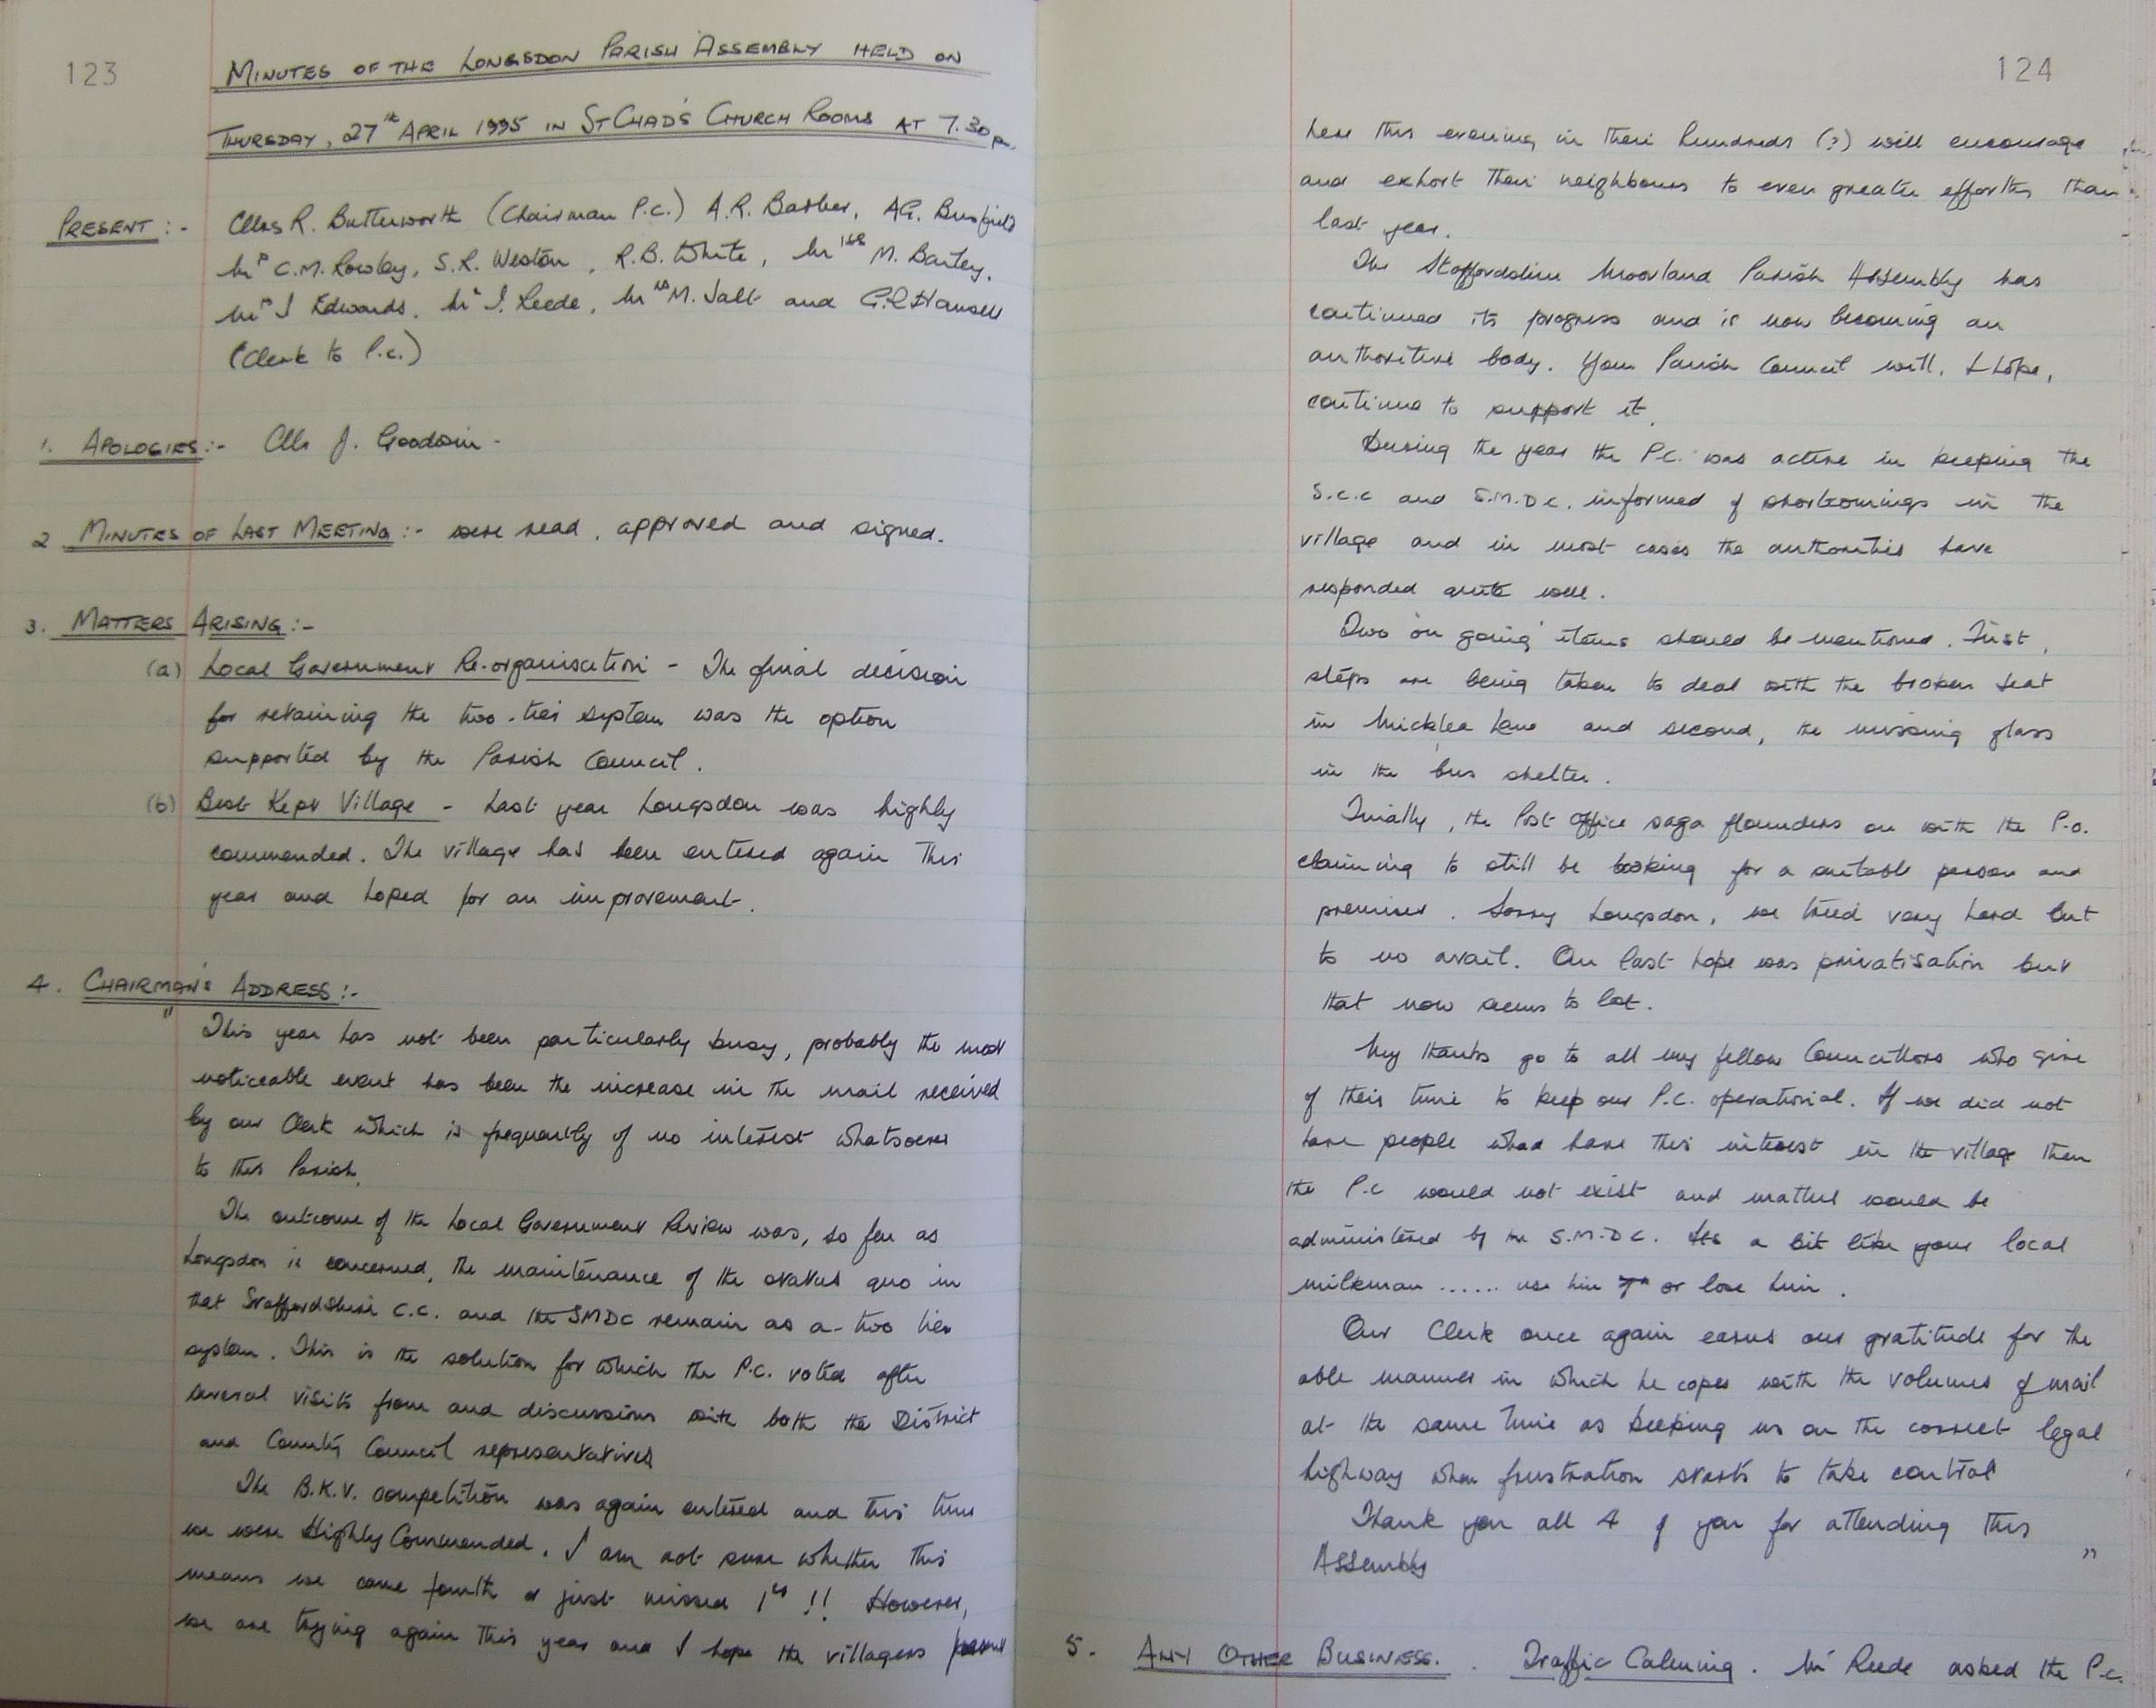 123
MINUTES OF THE LONGSDON PARISH ASSEMBLY HELD ON
THURSDAY, 27th APRIL 1995 IN ST CHAD'S CHURCH ROOMS AT 7.30p
PRESENT :- Cllrs R. Butterworth (Chairman P.C.) A.R. Barber, AG. Busfield
Mrs C.M. Rowley, S.R. Weston, R.B. White, Miss M. Bailey,
Mrs J Edwards, Mr J. Reede, Mrs M. Salt and G.R Hansell
(Clerk to P.C.)
1. APOLOGIES :- Cllr J. Goodwin -
2 MINUTES OF LAST MEETING :- were read, approved and signed.
3. MATTERS ARISING :-
(a) Local Government Re-organisation - The final decision
for retaining the two-tier system was the option
supported by the Parish Council.
(b) Best Kept Village - Last year Longsdon was highly
commended. The village has been entered again this
year and hoped for an improvement.
4. CHAIRMAN'S ADDRESS :-
" This year has not been particularly busy, probably the most
noticeable event has been the increase in the mail received
by our Clerk which is frequently of no interest whatsoever
to this Parish.
The outcome of the Local Government Review was, so far as
Longsdon is concerned, the maintenance of the status quo in
that Staffordshire C.C. and the SMDC remain as a two tier
system. This is the solution for which the P.C. voted after
several visits from and discussions with both the District
and County Council representatives
The B.K.V. competition was again entered and this time
we were Highly Commended. I am not sure whether this
means we came fourth or just missed 1st !! However,
we are trying again this year and I hope the villagers present
124
here this evening in their hundreds (?) will encourage
and exhort their neighbours to even greater efforths than
last year.
The Staffordshire Moorland Parish Assembly has
continued its progress and is now becoming an
authoritive body. Your Parish Council will, I hope,
continue to support it.
During the year the P.C. was active in keeping the
S.C.C and S.M.D.C. informed of shortcomings in the
village and in most cases the authorities have
responded quite well.
Two 'on going' items should be mentioned. First,
steps are being taken to deal with the broken seat
in Micklea Lane and second, the missing glass
in the bus shelter.
Finally, the Post Office saga flounders on with the P.O.
claiming to still be looking for a suitable person and
premises. Sorry Longsdon, we tried very hard but
to no avail. Our last hope was privatisation but
that now seems to lot.
My thanks go to all my fellow Councillors who give
of their time to keep our P.C. operational. If we did not
have people who have this interest in the village then
the P.C would not exist and matters would be
administered by the S.M.D.C. Its a bit like your local
milkman ...... use him or lose him.
Our Clerk once again earns our gratitude for the
able manner in which he copes with the volumes of mail
at the same time as keeping us on the correct legal
highway when frustration starts to take control
Thank you all 4 of you for attending this
Assembly "
5. ANY OTHER BUSINESS. Traffic Calming. Mr Reede asked the P.C.